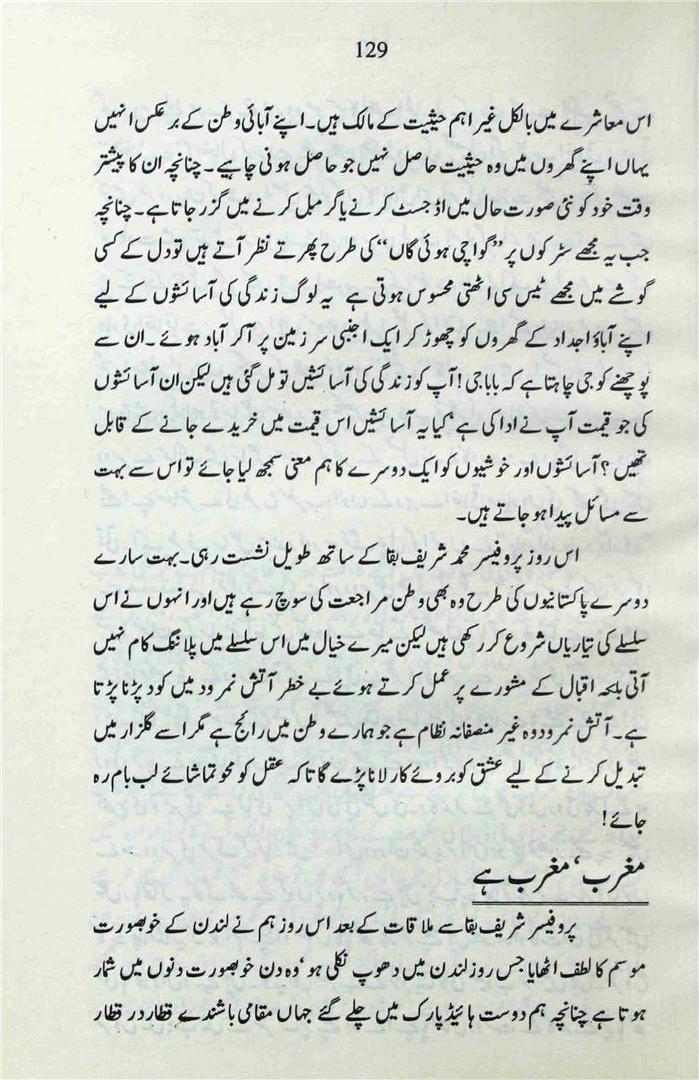 129
اس معاشرے میں بالکل غیر اہم حیثیت کے مالک ہیں۔ اپنے آبائی وطن کے برعکس انہیں
یہاں اپنے گھروں میں وہ حیثیت حاصل نہیں جو حاصل ہونی چاہیے۔ چنانچہ ان کا پیشتر
وقت خود کو نئی صورت حال میں اڈجسٹ کرنے یا گرمبل کرنے میں گزر جاتا ہے۔ چنانچہ
جب یہ مجھے سڑکوں پر ”گواچی ہوئی گاں“ کی طرح پھرتے نظر آتے ہیں تو دل کے کسی
گوشے میں مجھے ٹیس سی اٹھتی محسوس ہوتی ہے یہ لوگ زندگی کی آسائشوں کے لیے
اپنے آباؤ اجداد کے گھروں کو چھوڑ کر ایک اجنبی سرزمین پر آکر آباد ہوئے۔ ان سے
پوچھنے کو جی چاہتا ہے کہ بابا جی! آپ کو زندگی کی آسائشیں تو مل گئی ہیں لیکن ان آسائشوں
کی جو قیمت آپ نے ادا کی ہے‘ کیا یہ آسائشیں اس قیمت میں خریدے جانے کے قابل
تھیں؟ آسائشوں اور خوشیوں کو ایک دوسرے کا ہم معنی سمجھ لیا جائے تو اس سے بہت
سے مسائل پیدا ہو جاتے ہیں۔
اس روز پروفیسر محمد شریف بقا کے ساتھ طویل نشست رہی۔ بہت سارے
دوسرے پاکستانیوں کی طرح وہ بھی وطن مراجعت کی سوچ رہے ہیں اور انہوں نے اس
سلسلے کی تیاریاں شروع کر رکھی ہیں لیکن میرے خیال میں اس سلسلے میں پلاننگ کام نہیں
آتی بلکہ اقبال کے مشورے پر عمل کرتے ہوئے بے خطر آتش نمرود میں کود پڑنا پڑتا
ہے۔ آتش نمرود وہ غیر منصفانہ نظام ہے جو ہمارے وطن میں رائج ہے مگر اسے گلزار میں
تبدیل کرنے کے لیے عشق کو بروئے کار لانا پڑے گا تاکہ عقل کو محو تماشائے لب بام رہ
جائے!
مغرب‘ مغرب ہے
پروفیسر شریف بقا سے ملاقات کے بعد اس روز ہم نے لندن کے خوبصورت
موسم کا لطف اٹھایا جس روز لندن میں دھوپ نکلی ہو‘ وہ دن خوبصورت دنوں میں شمار
ہوتا ہے چنانچہ ہم دوست ہائیڈ پارک میں چلے گئے جہاں مقامی باشندے قطار در قطار